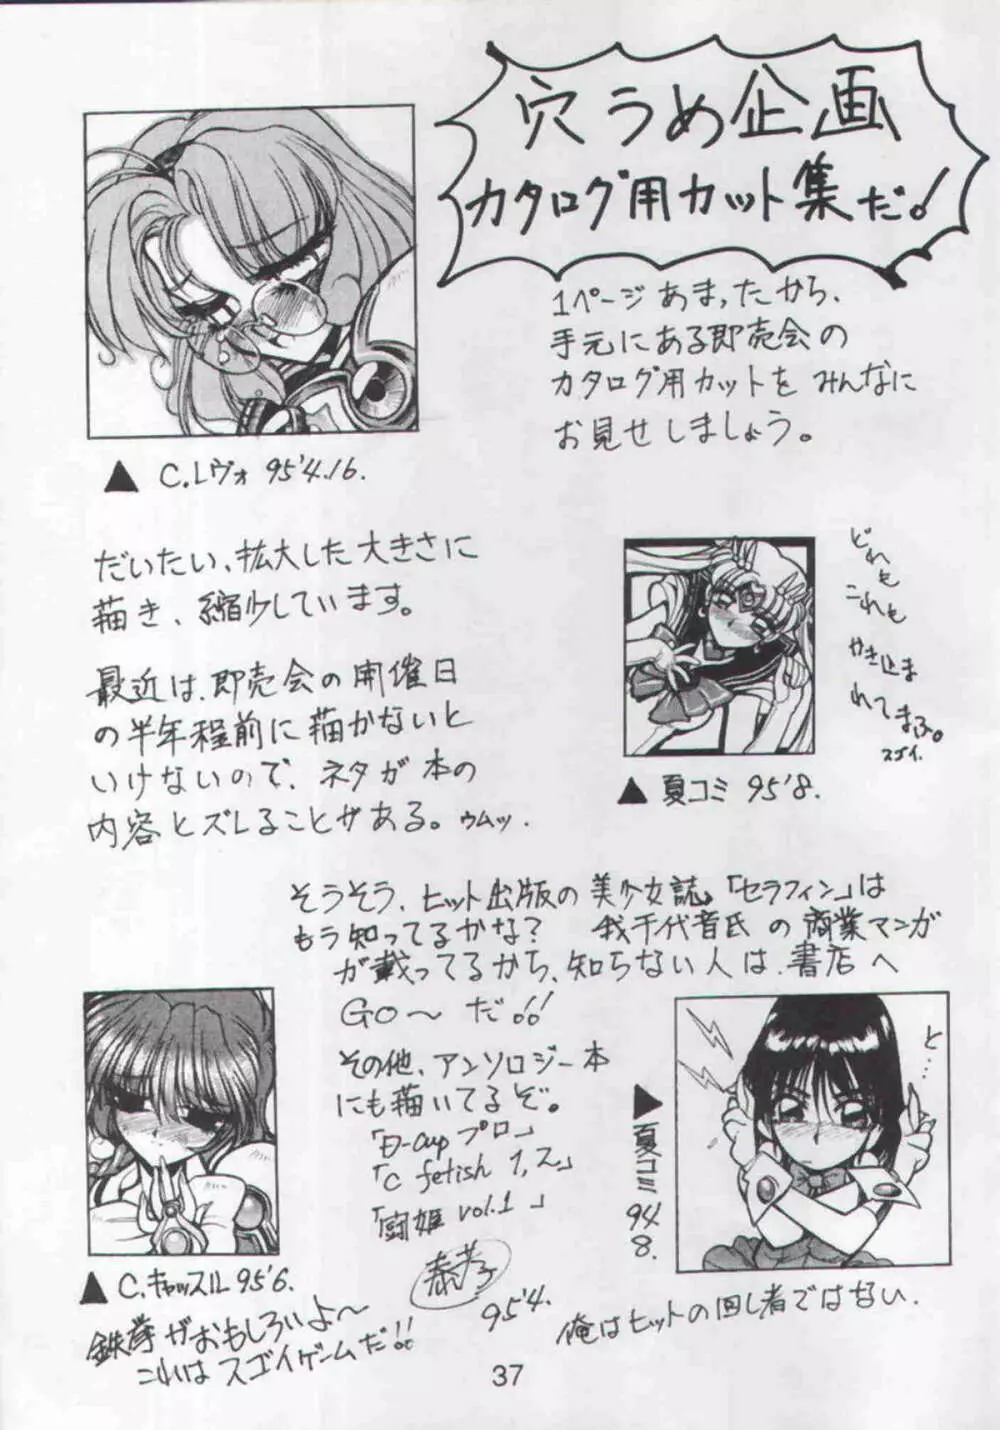 穴うめ企画
カタログ用カット集だ!
1ページあまったから、
手元にある即売会の
カタログ用カットをみんなに
お見せしましょう。
▲ C.レヴォ 95'4.16.
だいたい、拡大した大きさに
描き、縮少しています。
どれも
これも
やき止ま
れてまふ。
スゴイ.
最近は、即売会の開催日
の半年程前に描かないと
いけないので、ネタが本の
内容とズレることがある。ゥムッ.
▲ 夏コミ 95'8.
そうそう、ヒット出版の美少女誌「セラフィン」は
もう知ってるかな? 我千代音氏の商業マンガ
が載ってるから、知らない人は、書店へ
GO〜だ!!
その他、アンソロジー本
にも描いてるぞ。
「D-Cup プロ」
「C fetish
「闘姫 vol.1」
95'4.
と…
▲ 夏コミ 94 8.
▲ C.キャッスル 95'6.
鉄拳がおもしろいよ〜
これはスゴイゲームだ!!
俺はヒットの回し者ではない.
37